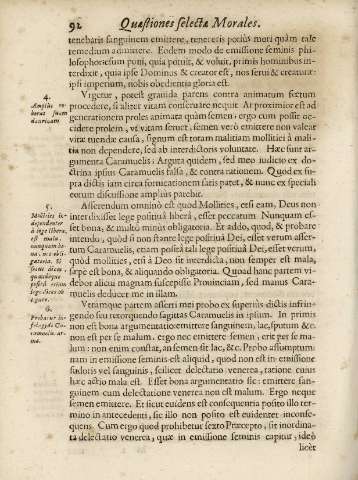 92 Quæstiones selectæ Morales.
tenebaris sanguinem emittere, teneteris potiùs mori quàm tale
remedium admittere. Eodem modo de emissione seminis phi-
losophorum poni, quia potuit, & voluit, primis hominibus in-
terdixit, quia ipse Dominus & creator est, nos serui & creaturæ:
ipsi imperium, nobis obedientia gloria est.
4.
Vrgetur, potest grauida parens contra animatum fœtum
procedere, si aliter vitam conseruare nequit. At proximior est ad
generationem proles animata quàm semen: ergo cum possit oc-
cidere prolem, vt vitam seruet, semen verò emittere non valeat
vitæ tuendæ causa, signum est totam malitiam mollitiei à mali-
tia non dependere, sed ab interdictoris voluntate. Hæc sunt ar-
gumenta Caramuelis: Arguta quidem, sed meo iudicio ex do-
ctrina ipsius Caramuelis falsa, & contra rationem. Quod ex su-
pra dictis iam circa fornicationem satis patet, & nunc ex speciali
eorum discussione ampliùs parebit.
5.
Asserendum omninò est quod Mollities, etsi eam, Deus non
interdixisset lege positiuâ liberâ, esset peccatum. Nunquam es-
set bona, & multò minùs obligatoria. Et addo, quod, & probare
intendo, quòd si non stante lege positiuâ Dei, verum esset asser-
tum Caramuelis, etiam positâ tali lege positiuâ Dei, esset verum,
quòd mollities, etsi à Deo sit interdicta, non semper est mala,
sæpe est bona, & aliquando obligatoria. Quoad hanc partem vi-
debor alicui magnam suscepisse Prouinciam, sed manus Cara-
muelis deducet me in illam.
6.
Vtramque partem asserti mei probo ex superiùs dictis infrin-
gendo seu retorquendo sagittas Caramuelis in ipsum. In primis
non est bona argumentatio: emittere sanguinem, lac, sputum &c.
non est per se malum. ergo nec emittere semen, erit per se ma-
lum: non enim constat, an semen sit lac, &c. Probo assumptum:
nam in emissione seminis est aliquid, quod non est in emissione
sudoris vel sanguinis, scilicet delectatio venerea, ratione cuius
hæc actio mala est. Esset bona argumentatio sic: emittere san-
guinem cum delectatione venerea non est malum. Ergo neque
semen emittere. Et sicut euidens est consequentia posito illo ter-
mino in antecedenti, sic illo non posito est euidenter inconse-
quens. Cum ergo quod prohibetur sexto Præcepto, sit inordina-
ta delectatio venerea, quæ in emissione seminis capitur, ideò
licèt